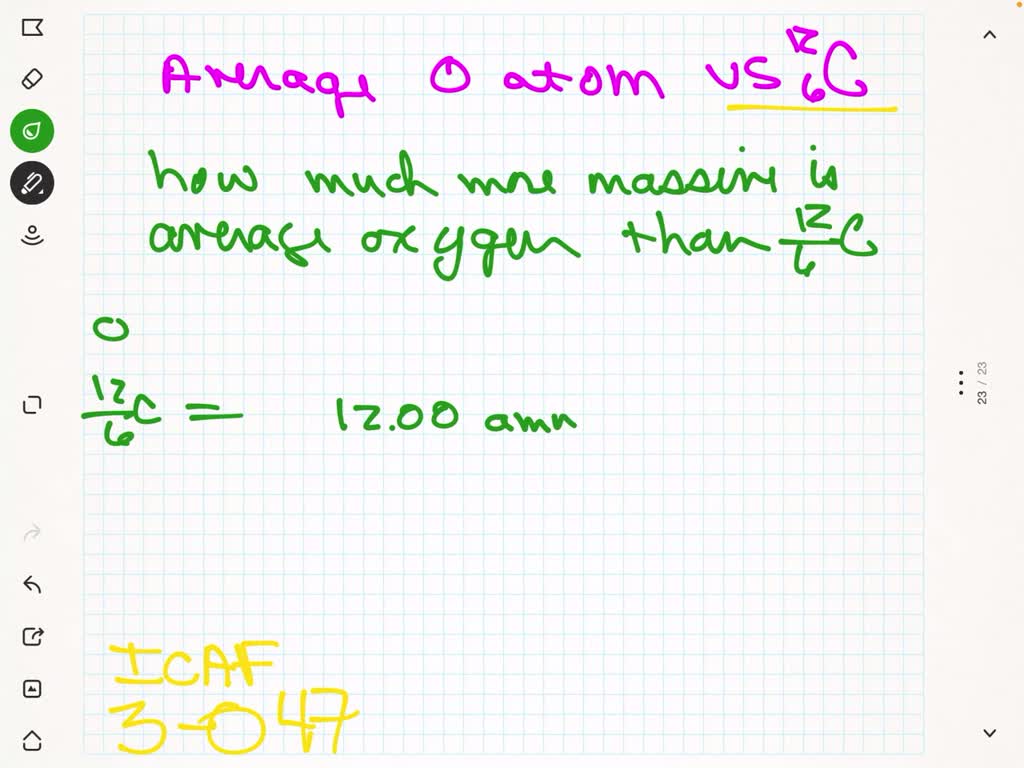 Average O atom vs ¹²₆C
how much more massive is
average oxygen than ¹²₆C
O
¹²₆C = 12.00 amu
ICAF
3-047
23 / 23